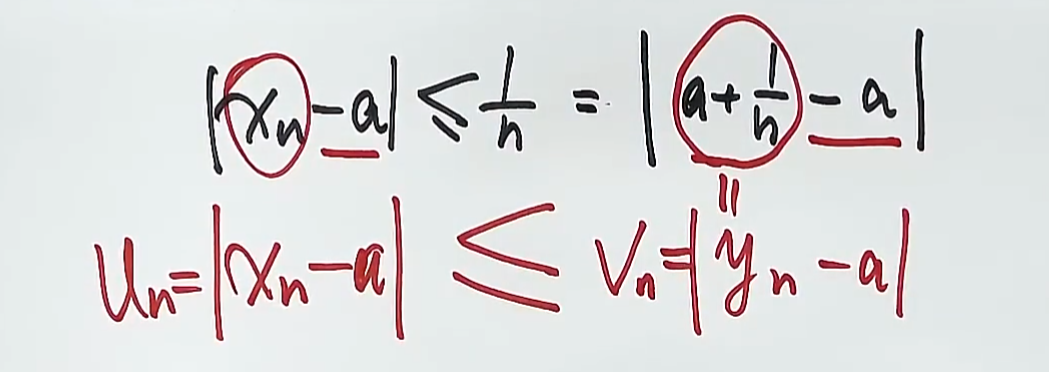 |xₙ - a| ≤ 1/n = |a + 1/n - a|
॥
uₙ = |xₙ - a| ≤ vₙ = |yₙ - a|